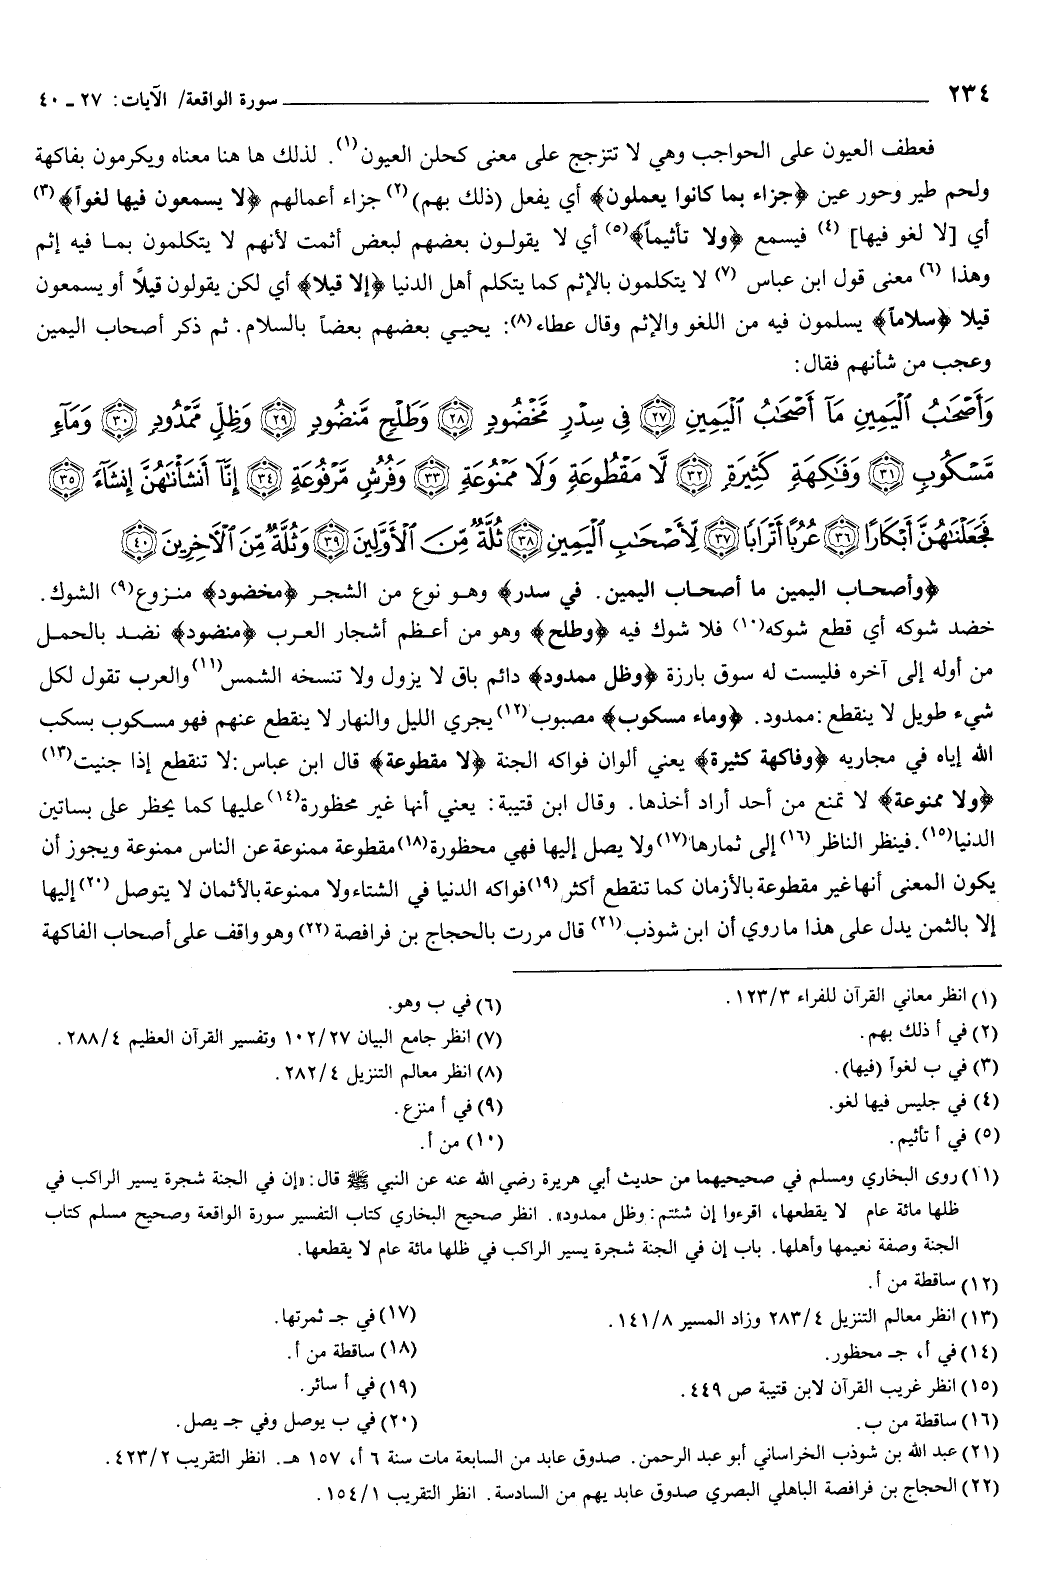 ٢٣٤ سورة الواقعة/ الآيات: ٢٧ ـ ٤٠
فعطف العيون على الحواجب وهي لا تتزجج على معنى كحلن العيون(١). لذلك ها هنا معناه ويكرمون بفاكهة
ولحم طير وحور عين ﴿جزاء بما كانوا يعملون﴾ أي يفعل (ذلك بهم)(٢) جزاء أعمالهم ﴿لا يسمعون فيها لغواً﴾(٣)
أي [لا لغو فيها] (٤) فيسمع ﴿ولا تأثيماً﴾(٥) أي لا يقولون بعضهم لبعض أثمت لأنهم لا يتكلمون بما فيه إثم
وهذا (٦) معنى قول ابن عباس (٧) لا يتكلمون بالإثم كما يتكلم أهل الدنيا ﴿إلا قيلا﴾ أي لكن يقولون قيلاً أو يسمعون
قيلا ﴿سلاماً﴾ يسلمون فيه من اللغو والإثم وقال عطاء(٨): يحيي بعضهم بعضاً بالسلام. ثم ذكر أصحاب اليمين
وعجب من شأنهم فقال:
وَأَصْحَٰبُ ٱلْيَمِينِ مَآ أَصْحَٰبُ ٱلْيَمِينِ ٢٧ فِى سِدْرٍ مَّخْضُودٍ ٢٨ وَطَلْحٍ مَّنضُودٍ ٢٩ وَظِلٍّ مَّمْدُودٍ ٣٠ وَمَآءٍ
مَّسْكُوبٍ ٣١ وَفَٰكِهَةٍ كَثِيرَةٍ ٣٢ لَّا مَقْطُوعَةٍ وَلَا مَمْنُوعَةٍ ٣٣ وَفُرُشٍ مَّرْفُوعَةٍ ٣٤ إِنَّآ أَنشَأْنَٰهُنَّ إِنشَآءً ٣٥
فَجَعَلْنَٰهُنَّ أَبْكَارًا ٣٦ عُرُبًا أَتْرَابًا ٣٧ لِّأَصْحَٰبِ ٱلْيَمِينِ ٣٨ ثُلَّةٌ مِّنَ ٱلْأَوَّلِينَ ٣٩ وَثُلَّةٌ مِّنَ ٱلْآخِرِينَ ٤٠
﴿وأصحاب اليمين ما أصحاب اليمين. في سدر﴾ وهو نوع من الشجر ﴿مخضود﴾ منزوع(٩) الشوك.
خضد شوكه أي قطع شوكه(١٠) فلا شوك فيه ﴿وطلح﴾ وهو من أعظم أشجار العرب ﴿منضود﴾ نضد بالحمل
من أوله إلى آخره فليست له سوق بارزة ﴿وظل ممدود﴾ دائم باق لا يزول ولا تنسخه الشمس(١١) والعرب تقول لكل
شيء طويل لا ينقطع: ممدود. ﴿وماء مسكوب﴾ مصبوب(١٢) يجري الليل والنهار لا ينقطع عنهم فهو مسكوب بسكب
الله إياه في مجاريه ﴿وفاكهة كثيرة﴾ يعني ألوان فواكه الجنة ﴿لا مقطوعة﴾ قال ابن عباس: لا تنقطع إذا جنيت(١٣)
﴿ولا ممنوعة﴾ لا تمنع من أحد أراد أخذها. وقال ابن قتيبة: يعني أنها غير محظورة(١٤) عليها كما يحظر على بساتين
الدنيا(١٥). فينظر الناظر (١٦) إلى ثمارها(١٧) ولا يصل إليها فهي محظورة(١٨) مقطوعة ممنوعة عن الناس ممنوعة ويجوز أن
يكون المعنى أنها غير مقطوعة بالأزمان كما تنقطع أكثر (١٩) فواكه الدنيا في الشتاء ولا ممنوعة بالأثمان لا يتوصل (٢٠) إليها
إلا بالثمن يدل على هذا ما روي أن ابن شوذب(٢١) قال مررت بالحجاج بن فرافصة (٢٢) وهو واقف على أصحاب الفاكهة
(١) انظر معاني القرآن للفراء ٣/١٢٣.
(٢) في أ ذلك بهم.
(٣) في ب لغوآ (فيها).
(٤) في جليس فيها لغو.
(٥) في أ تأثيم.
(٦) في ب وهو.
(٧) انظر جامع البيان ٢٧/١٠٢ وتفسير القرآن العظيم ٤/٢٨٨.
(٨) انظر معالم التنزيل ٤/٢٨٢.
(٩) في أ منزع.
(١٠) من أ.
(١١) روى البخاري ومسلم في صحيحيهما من حديث أبي هريرة رضي الله عنه عن النبي ﷺ قال: «إن في الجنة شجرة يسير الراكب في
ظلها مائة عام لا يقطعها، اقرءوا إن شئتم: وظل ممدود». انظر صحيح البخاري كتاب التفسير سورة الواقعة وصحيح مسلم كتاب
الجنة وصفة نعيمها وأهلها. باب إن في الجنة شجرة يسير الراكب في ظلها مائة عام لا يقطعها.
(١٢) ساقطة من أ.
(١٣) انظر معالم التنزيل ٤/٢٨٣ وزاد المسير ٨/١٤١.
(١٤) في أ، جـ محظور.
(١٥) انظر غريب القرآن لابن قتيبة ص ٤٤٩.
(١٦) ساقطة من ب.
(١٧) في جـ ثمرتها.
(١٨) ساقطة من أ.
(١٩) في أ سائر.
(٢٠) في ب يوصل وفي جـ يصل.
(٢١) عبد الله بن شوذب الخراساني أبو عبد الرحمن. صدوق عابد من السابعة مات سنة ٦ أ، ١٥٧ هـ. انظر التقريب ٢/٤٢٣.
(٢٢) الحجاج بن فرافصة الباهلي البصري صدوق عابد يهم من السادسة. انظر التقريب ١/١٥٤.